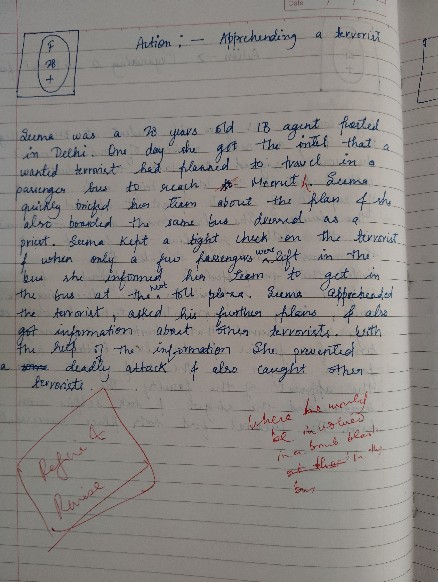 Date
Action :- Apprehending a terrorist
F
28
+
Seema was a 28 years old IB agent posted
in Delhi. One day she got the intel that a
wanted terrorist had planned to travel in a
passenger bus to reach Meerut. Seema
quickly briefed her team about the plan & she
also boarded the same bus dressed as a
priest. Seema kept a tight check on the terrorist
& when only a few passengers were left in the
bus she informed her team to get in
the bus at the next toll plaza. Seema apprehended
the terrorist, asked his further plans, & also
got information about other terrorists. With
the help of the information She prevented
a deadly attack & also caught other
terrorists.
where he would
be involved
in a bomb blast
in the
bus
Refine &
Revise